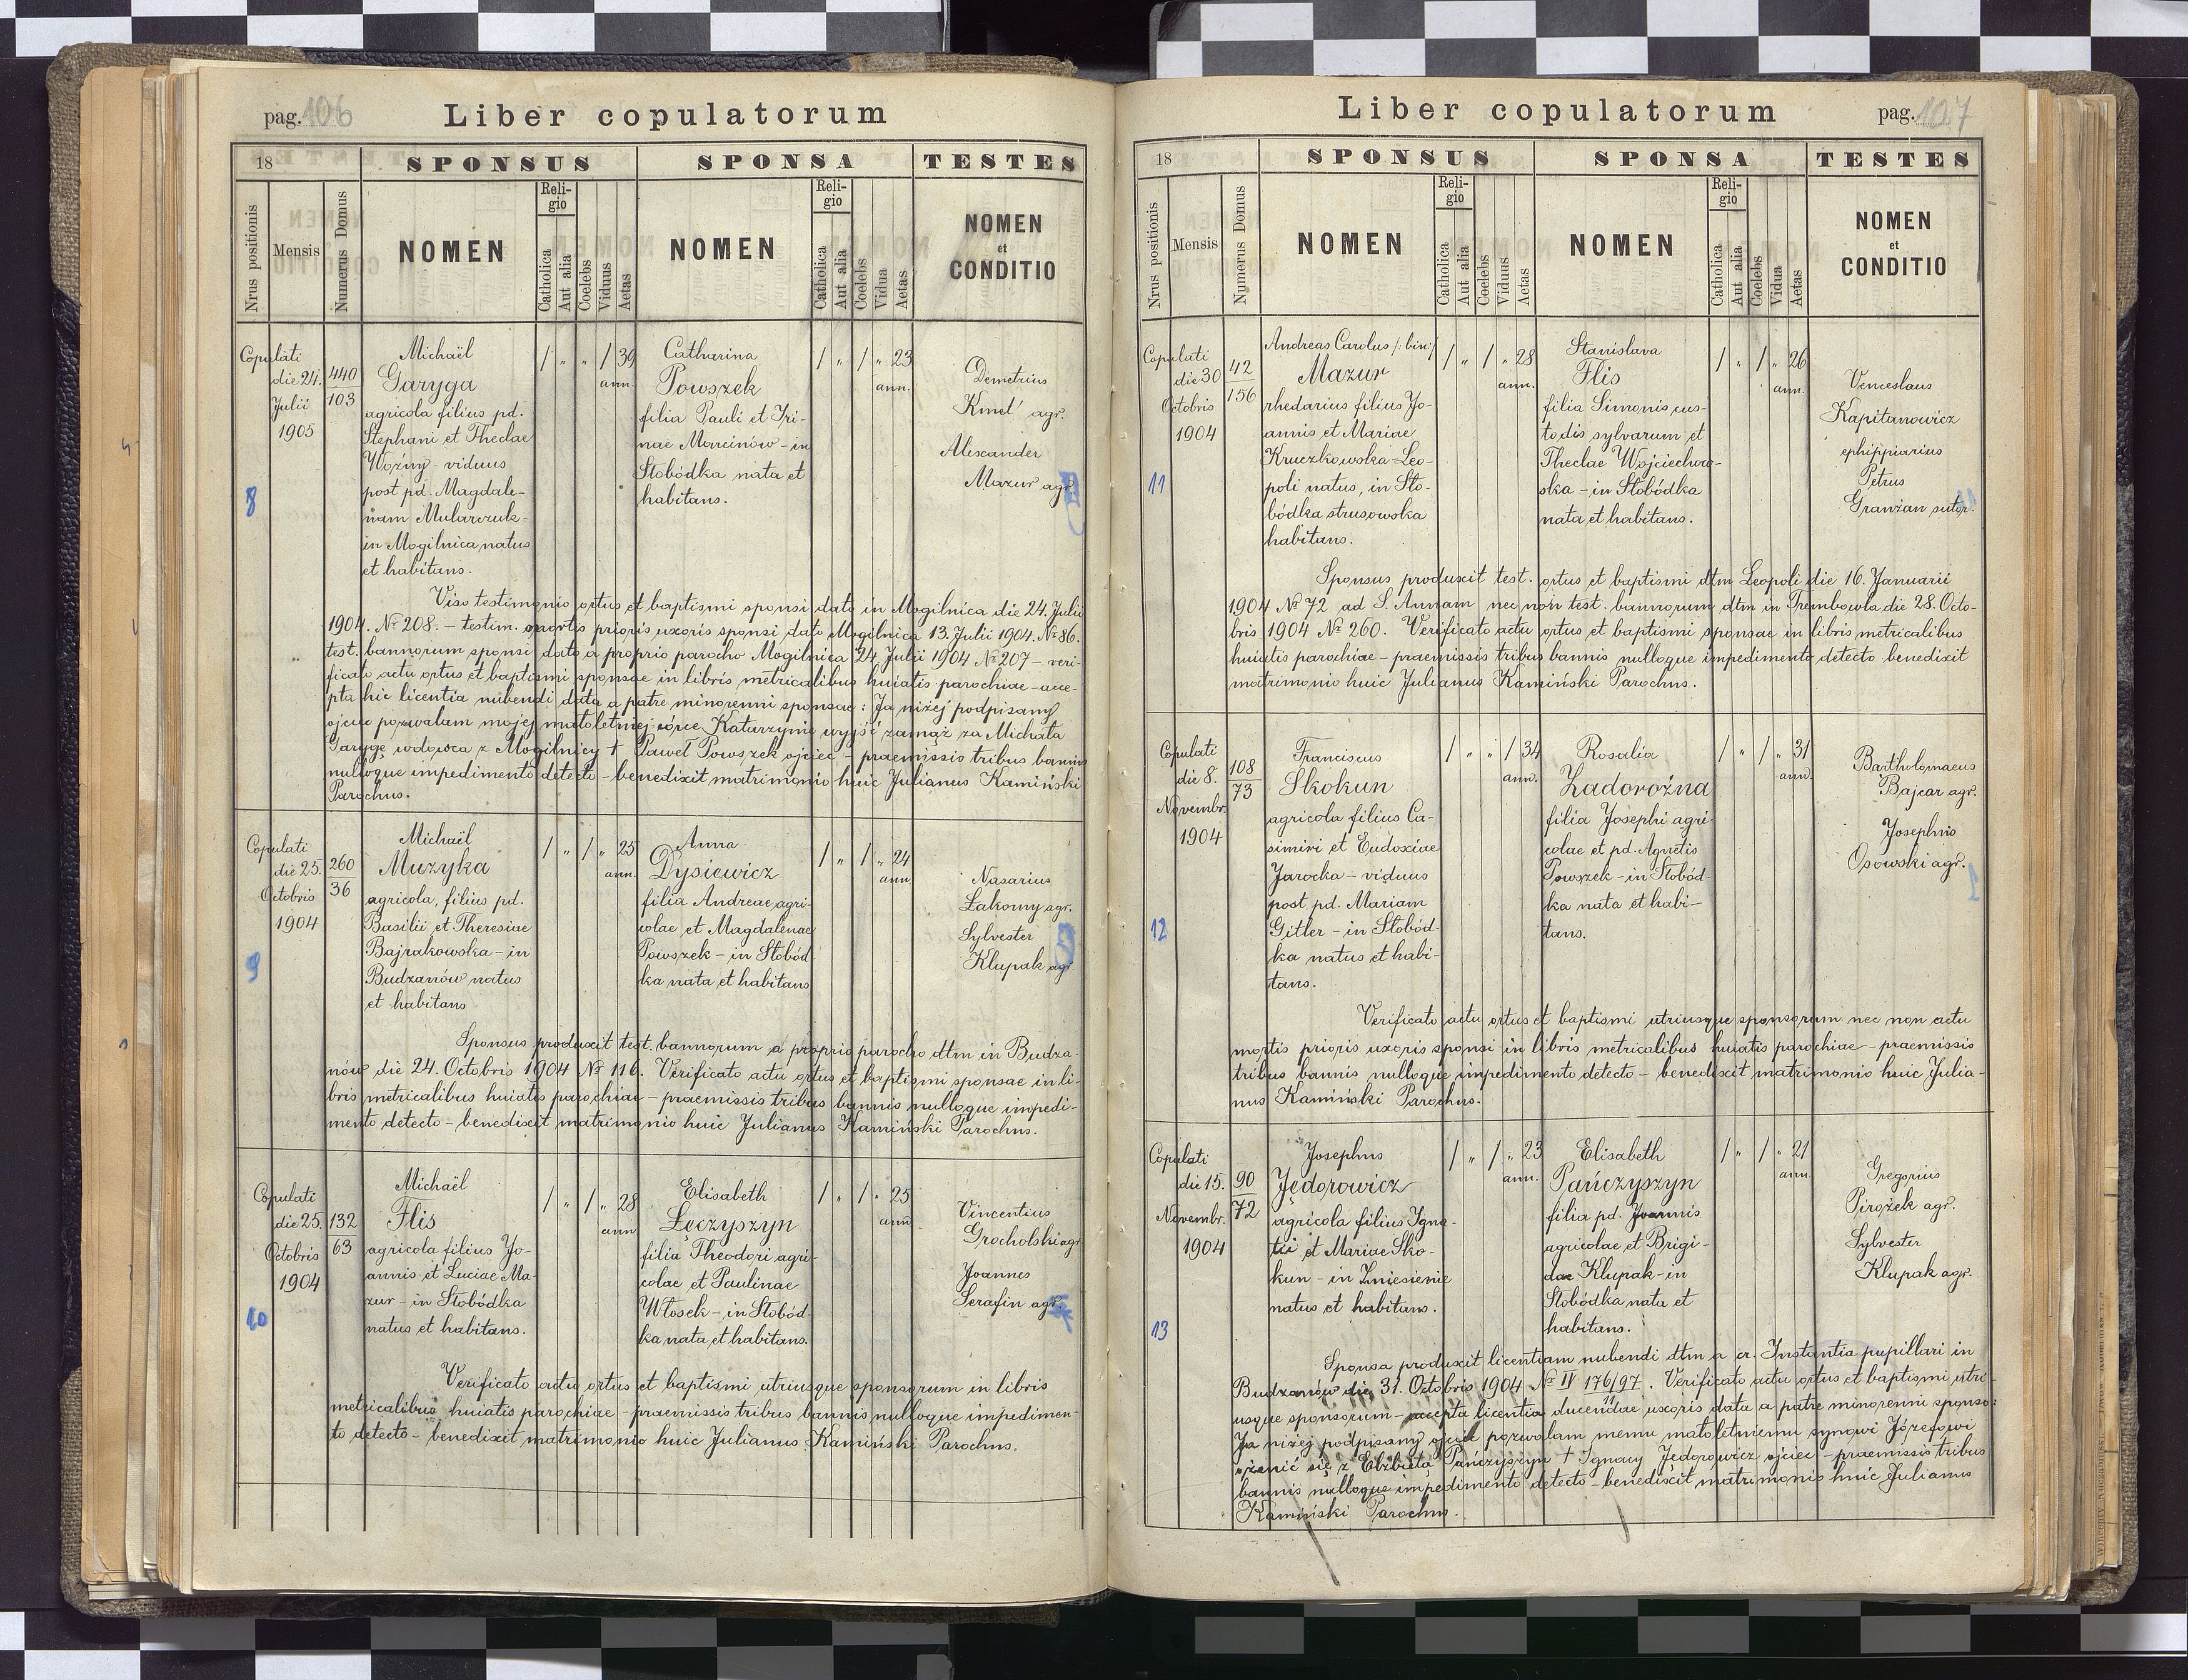 pag. 106
Liber copulatorum
18
SPONSUS
SPONSA
TESTES
Nrus positionis
Mensis
Numerus Domus
NOMEN
Religio
Catholica
Aut alia
Coelebs
Viduus
Aetas
NOMEN
Religio
Catholica
Aut alia
Coelebs
Vidua
Aetas
NOMEN
et
CONDITIO
8
Copulati
die 24.
Julii
1905
440
103
Michaël
Garyga
agricola filius pd.
Stephani et Theclae
Woźny - viduus
post pd. Magdale-
nam Mularczuk -
in Mogilnica natus
et habitans.
/ " " / 39
ann.
Catharina
Powszek
filia Pauli et Iri-
nae Marcinów - in
Słobódka nata et
habitans.
/ " / " 23
ann.
Demetrius
Kmet' agr.
Alexander
Mazur agr.
Viso testimonio ortus et baptismi sponsi dato in Mogilnica die 24. Julii
1904. № 208. - testim. mortis prioris uxoris sponsi dato Mogilnica 13. Julii 1904. № 86.
test. bannorum sponsi dato a proprio parocho Mogilnica 24 Julii 1904 № 207 - veri-
ficato actu ortus et baptismi sponsae in libris metricalibus huiatis parochiae - acce-
pta hic licentia nubendi data a patre minorenni sponsae: Ja niżej podpisany
ojciec pozwalam mojej małoletniej córce Katarzynie wyjść zamąż za Michała
Garygę wdowca z Mogilnicy † Paweł Powszek ojciec - praemissis tribus bannis
nulloque impedimento detecto - benedixit matrimonio huic Julianus Kamiński
Parochus.
9
Copulati
die 25.
Octobris
1904
260
36
Michaël
Muzyka
agricola, filius pd.
Basilii et Theresiae
Bajrakowska - in
Budzanów natus
et habitans
/ " / " 25
ann.
Anna
Dysiewicz
filia Andreae agri-
colae et Magdalenae
Powszek - in Słobód-
ka nata et habitans
/ " / " 24
ann
Nasarius
Łakomy agr.
Sylvester
Klupak agr.
Sponsus produxit test. bannorum a proprio parocho dtm in Budza-
nów die 24. Octobris 1904 № 116. Verificato actu ortus et baptismi sponsae in li-
bris metricalibus huiatis parochiae - praemissis tribus bannis nulloque impedi-
mento detecto - benedixit matrimonio huic Julianus Kamiński Parochus.
10
Copulati
die 25.
Octobris
1904
132
63
Michaël
Flis
agricola filius Jo-
annis et Luciae Ma-
zur - in Słobódka
natus et habitans.
/ " / " 28
ann
Elisabeth
Łęczyszyn
filia Theodori agri-
colae et Paulinae
Włosek - in Słobód-
ka nata et habitans.
/ " / " 25
ann
Vincentius
Grocholski agr.
Joannes
Serafin agr.
Verificato actu ortus et baptismi utriusque sponsorum in libris
metricalibus huiatis parochiae - praemissis tribus bannis nulloque impedimen-
to detecto - benedixit matrimonio huic Julianus Kamiński Parochus.
pag. 107
Liber copulatorum
18
SPONSUS
SPONSA
TESTES
Nrus positionis
Mensis
Numerus Domus
NOMEN
Religio
Catholica
Aut alia
Coelebs
Viduus
Aetas
NOMEN
Religio
Catholica
Aut alia
Coelebs
Vidua
Aetas
NOMEN
et
CONDITIO
11
Copulati
die 30
Octobris
1904
42
156
Andreas Carolus /: bin:/
Mazur
rhedarius filius Jo-
annis et Mariae
Kruczkowska Leo-
poli natus, in Sło-
bódka strusowska
habitans.
/ " / " 28
ann.
Stanislava
Flis
filia Simonis cus-
todis sylvarum et
Theclae Wojciechow-
ska - in Słobódka
nata et habitans.
/ " / " 26
ann.
Venceslaus
Kapitanowicz
ephippiarius
Petrus
Granżan sutor.
Sponsus produxit test. ortus et baptismi dtm Leopoli die 16. Januarii
1904 № 72 ad S. Annam nec non test. bannorum dtm in Trembowla die 28. Octo-
bris 1904 № 260. Verificato actu ortus et baptismi sponsae in libris metricalibus
huiatis parochiae - praemissis tribus bannis nulloque impedimento detecto benedixit
matrimonio huic Julianus Kamiński Parochus.
12
Copulati
die 8.
Novembr.
1904
108
73
Franciscus
Skokun
agricola filius Ca-
simiri et Eudoxiae
Jarocka - viduus
post pd. Mariam
Gitler - in Słobód-
ka natus et habi-
tans.
/ " " / 34
ann.
Rosalia
Zadorożna
filia Josephi agri-
colae et pd. Agnetis
Powszek - in Słobód-
ka nata et habi-
tans.
/ " / " 31
ann.
Bartholomaeus
Bajcar agr.
Josephus
Osowski agr.
Verificato actu ortus et baptismi utriusque sponsorum nec non actu
mortis prioris uxoris sponsi in libris metricalibus huiatis parochiae - praemissis
tribus bannis nulloque impedimento detecto - benedixit matrimonio huic Julia-
nus Kamiński Parochus.
13
Copulati
die 15.
Novembr.
1904
90
72
Josephus
Jędorowicz
agricola filius Igna-
tii et Mariae Sko-
kun - in Zniesienie
natus et habitans.
/ " / " 23
ann.
Elisabeth
Pańczyszyn
filia pd. Joannis
agricolae et Brigi-
dae Klupak - in
Słobódka nata et
habitans.
/ " / " 21
ann
Gregorius
Pirożek agr.
Sylvester
Klupak agr.
Sponsa produxit licentiam nubendi dtm a cr. Instantia pupillari in
Budzanów die 31. Octobris 1904 № IV 176/97. Verificato actu ortus et baptismi utri-
usque sponsorum - accepta licentia ducendae uxoris data a patre minorenni sponso:
Ja niżej podpisany ojciec pozwalam memu małoletniemu synowi Józefowi
ożenić się z Elżbietą Pańczyszyn † Ignacy Jędorowicz ojciec - praemissis tribus
bannis nulloque impedimento detecto - benedixit matrimonio huic Julianus
Kamiński Parochus.